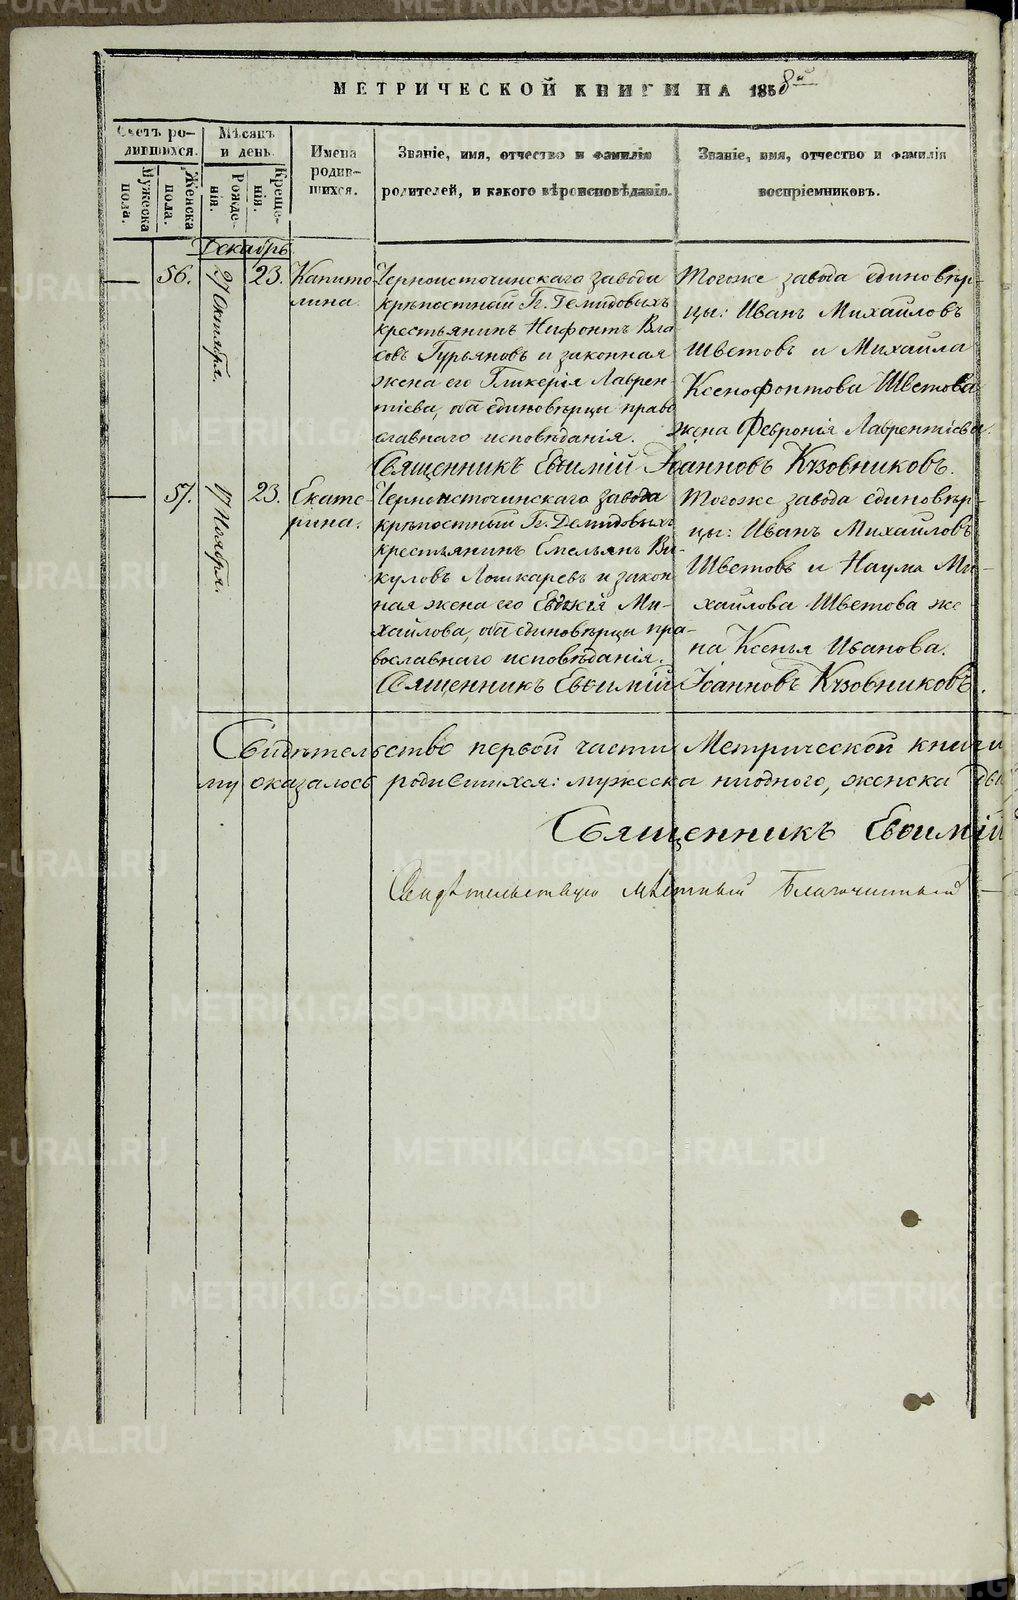 МЕТРИЧЕСКОЙ КНИГИ НА 1858й
Счетъ ро-
дившихся.
Мужеска
пола.
Женска
пола.
Мѣсяцъ
и день.
Рожде-
нія.
Креще-
нія.
Имена
родив-
шихся.
Званіе, имя, отчество и фамилія
родителей, и какого вѣроисповѣданія.
Званіе, имя, отчество и фамилія
воспріемниковъ.
Декабрь
56.
Октября.
23.
Капито-
лина.
Черноисточинскаго завода
крѣпостный Гг. Демидовыхъ
крестьянинъ Нифонтъ Вла
совъ Гурьяновъ и законная
жена его Гликерія Лаврен
тіева, оба единовѣрцы право
славнаго исповѣданія.
Тогоже завода единовѣр-
цы: Иванъ Михайловъ
Шветовъ и Михаила
Ксенофонтова Шветова
жена Февронія Лаврентіева.
Священникъ Евѳимій Іоанновъ Кузовниковъ.
57.
17 Ноября.
23.
Екате-
рина.
Черноисточинскаго завода
крѣпостный Гг. Демидовыхъ
крестьянинъ Емельянъ Ви-
куловъ Лошкаревъ и закон
ная жена его Евдокія Ми-
хайлова, оба единовѣрцы пра-
вославнаго исповѣданія.
Тогоже завода единовѣр-
цы: Иванъ Михайловъ
Шветовъ и Наума Ми-
хайлова Шветова же-
на Ксенья Иванова.
Священникъ Евѳимій Іоанновъ Кузовниковъ.
Свидѣтельство первой части Метрической книги
му оказалось родившихся: мужеска ниодного, женска два
Священникъ Евѳимій
Свидѣтельствую мѣстный Благочинный
METRIKI.GASO-URAL.RU